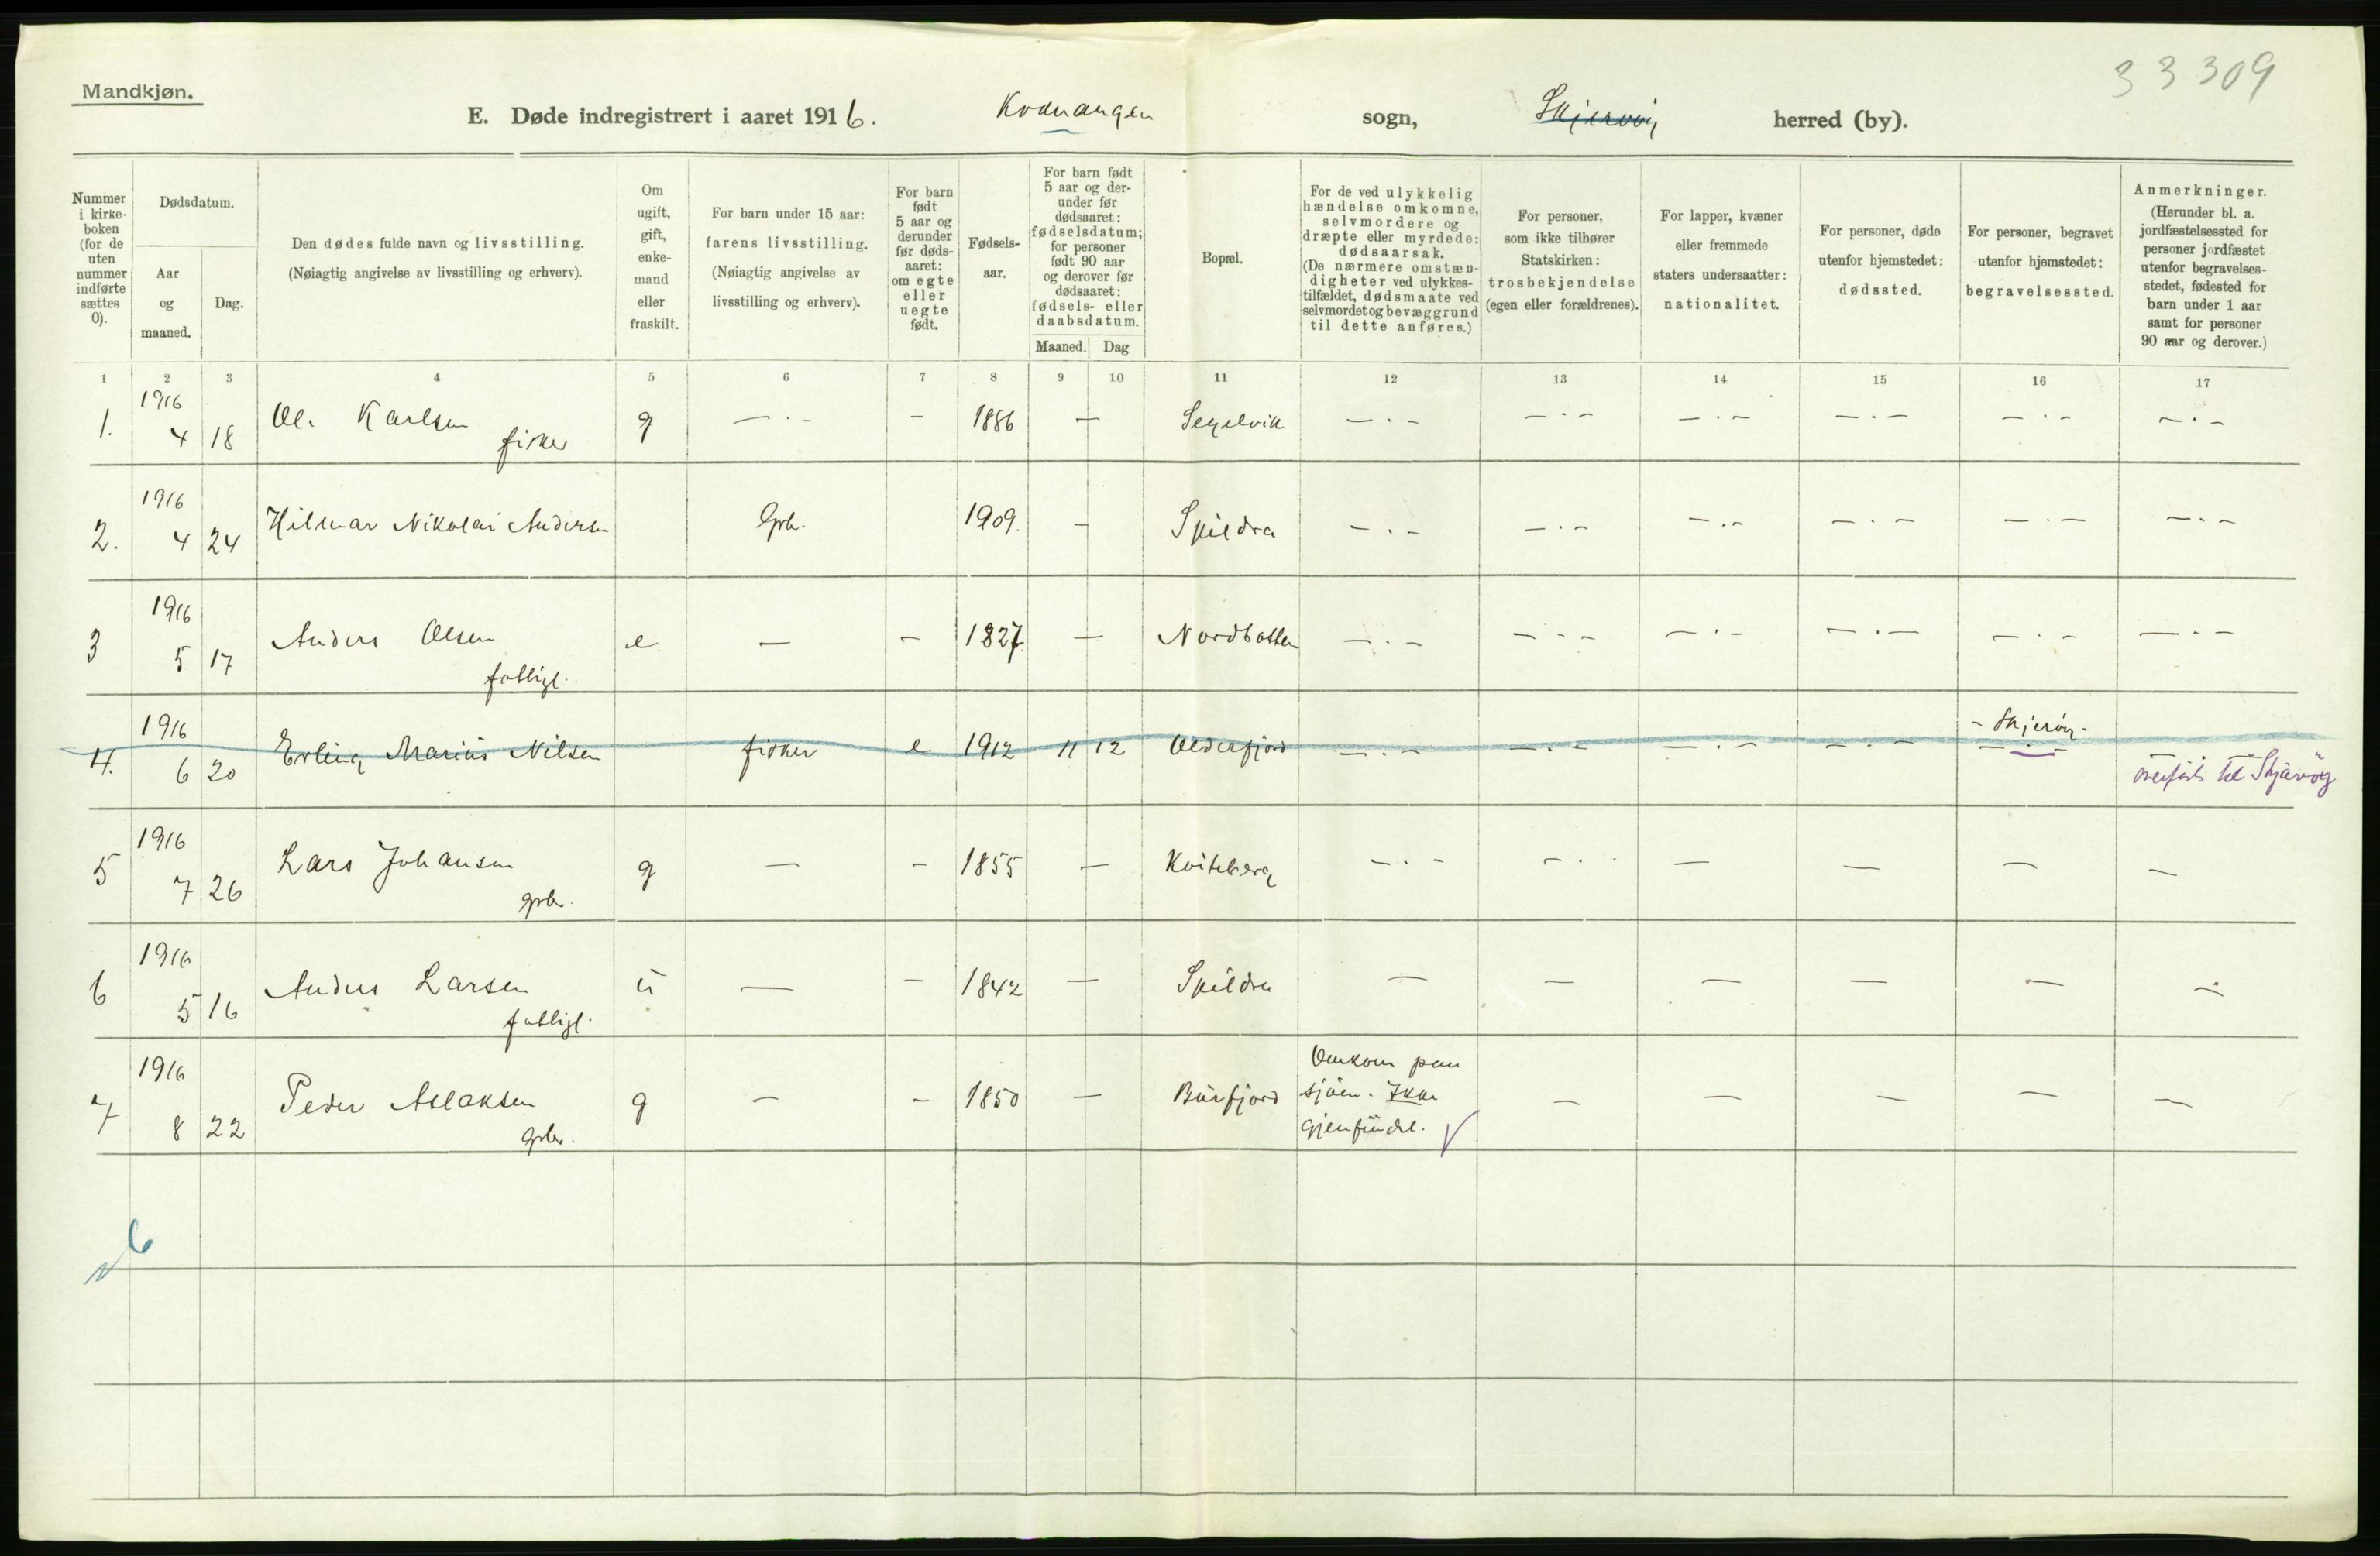 Mandkjøn.
33309
E. Døde indregistrert i aaret 1916. Kvænangen sogn, Skjervøy herred (by).
Nummer i kirkeboken (for de uten nummer indførte sættes 0).
Dødsdatum.
Aar og maaned.
Dag.
Den dødes fulde navn og livsstilling. (Nøiagtig angivelse av livsstilling og erhverv).
Om ugift, gift, enkemand eller fraskilt.
For barn under 15 aar: farens livsstilling. (Nøiagtig angivelse av livsstilling og erhverv).
For barn født 5 aar og derunder før dødsaaret: om egte eller uegte født.
Fødselsaar.
For barn født 5 aar og derunder før dødsaaret: fødselsdatum; for personer født 90 aar og derover før dødsaaret: fødsels- eller daabsdatum.
Maaned. Dag
Bopæl.
For de ved ulykkelig hændelse omkomne, selvmordere og dræpte eller myrdede: dødsaarsak. (De nærmere omstændigheter ved ulykkestilfældet, dødsmaate ved selvmordet og bevæggrund til dette anføres.)
For personer, som ikke tilhører Statskirken: trosbekjendelse (egen eller forældrenes).
For lapper, kvæner eller fremmede staters undersaatter: nationalitet.
For personer, døde utenfor hjemstedet: dødssted.
For personer, begravet utenfor hjemstedet: begravelsessted.
Anmerkninger. (Herunder bl. a. jordfæstelsessted for personer jordfæstet utenfor begravelsesstedet, fødested for barn under 1 aar samt for personer 90 aar og derover.)
1 2 3 4 5 6 7 8 9 10 11 12 13 14 15 16 17
1. 1916 4 18 Ole Karlsen fisker g — · — — 1886 — Segelvik — · — — · — — · — — · — — · — — · —
2. 1916 4 24 Hilmar Nikolai Andersen Grb. 1909. — Spildra — · — — · — — · — — · — — · — — · —
3 1916 5 17 Anders Olsen fattigl. e — — 1827 — Nordbotten — · — — - — — · — — · — — · — — · —
4. 1916 6 20 Erling Marius Nilsen fisker e 1912 11 12 Olderfjord — · — — · — — · — — · — - Skjervøy - — · — overført til Skjervøy
5 1916 7 26 Lars Johansen grbr. g — — 1855 — Kviteberg — · — — · · — — — —
6 1916 5 16 Anders Larsen fattigl. ü — — 1842 — Spildra — — — — — —
7 1916 8 22 Peder Aslaksen grbr. g — — 1850 — Burfjord Omkom paa sjöen. Ikke gjenfundet. V — — — — —
6